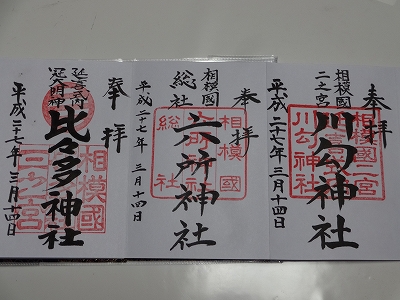 奉拝
相模國
二之宮
川勾神社
平成二十七年三月十四日
相模國二宮
川勾神社
奉拝
相模國
総社
六所神社
平成二十七年三月十四日
相模國
総社
六所神社
奉拝
延喜式内
冠大明神
比々多神社
平成二十七年三月十四日
相模國
三之宮